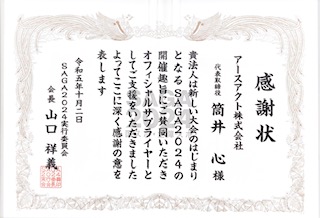 感謝状
アースアクト株式会社
代表取締役 筒井 心 様
貴法人は新しい大会のはじまり
となるSAGA2024の
開催趣旨にご賛同いただき
オフィシャルサプライヤーと
してご支援をいただきました
よってここに深く感謝の意を
表します
令和五年十月二日
SAGA2024実行委員会
会長 山口 祥義